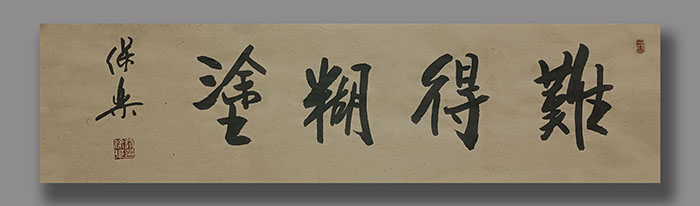 難得糊塗
保樂